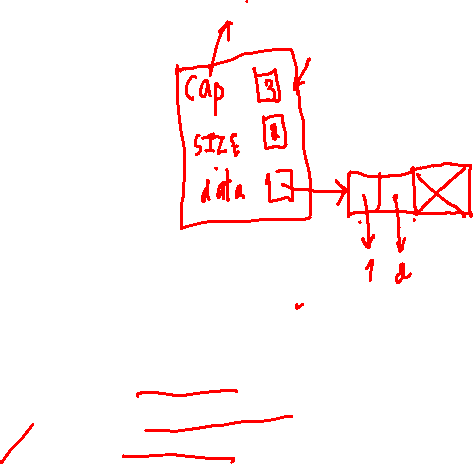 Cap 3
SIZE 2
data
1 2